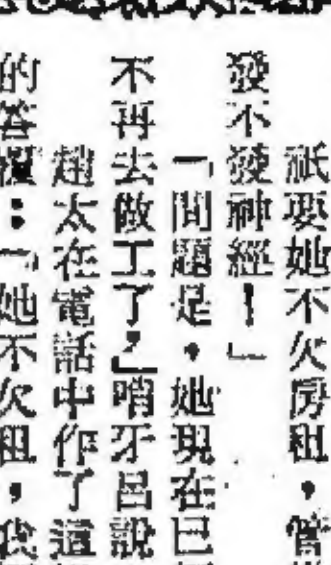 祇要她不欠房租，管
發不發神經！」
「問題是，她現在已
不再去做工了。」哨牙呂說
趙太在電話中作了這
的答覆：「她不欠租，我